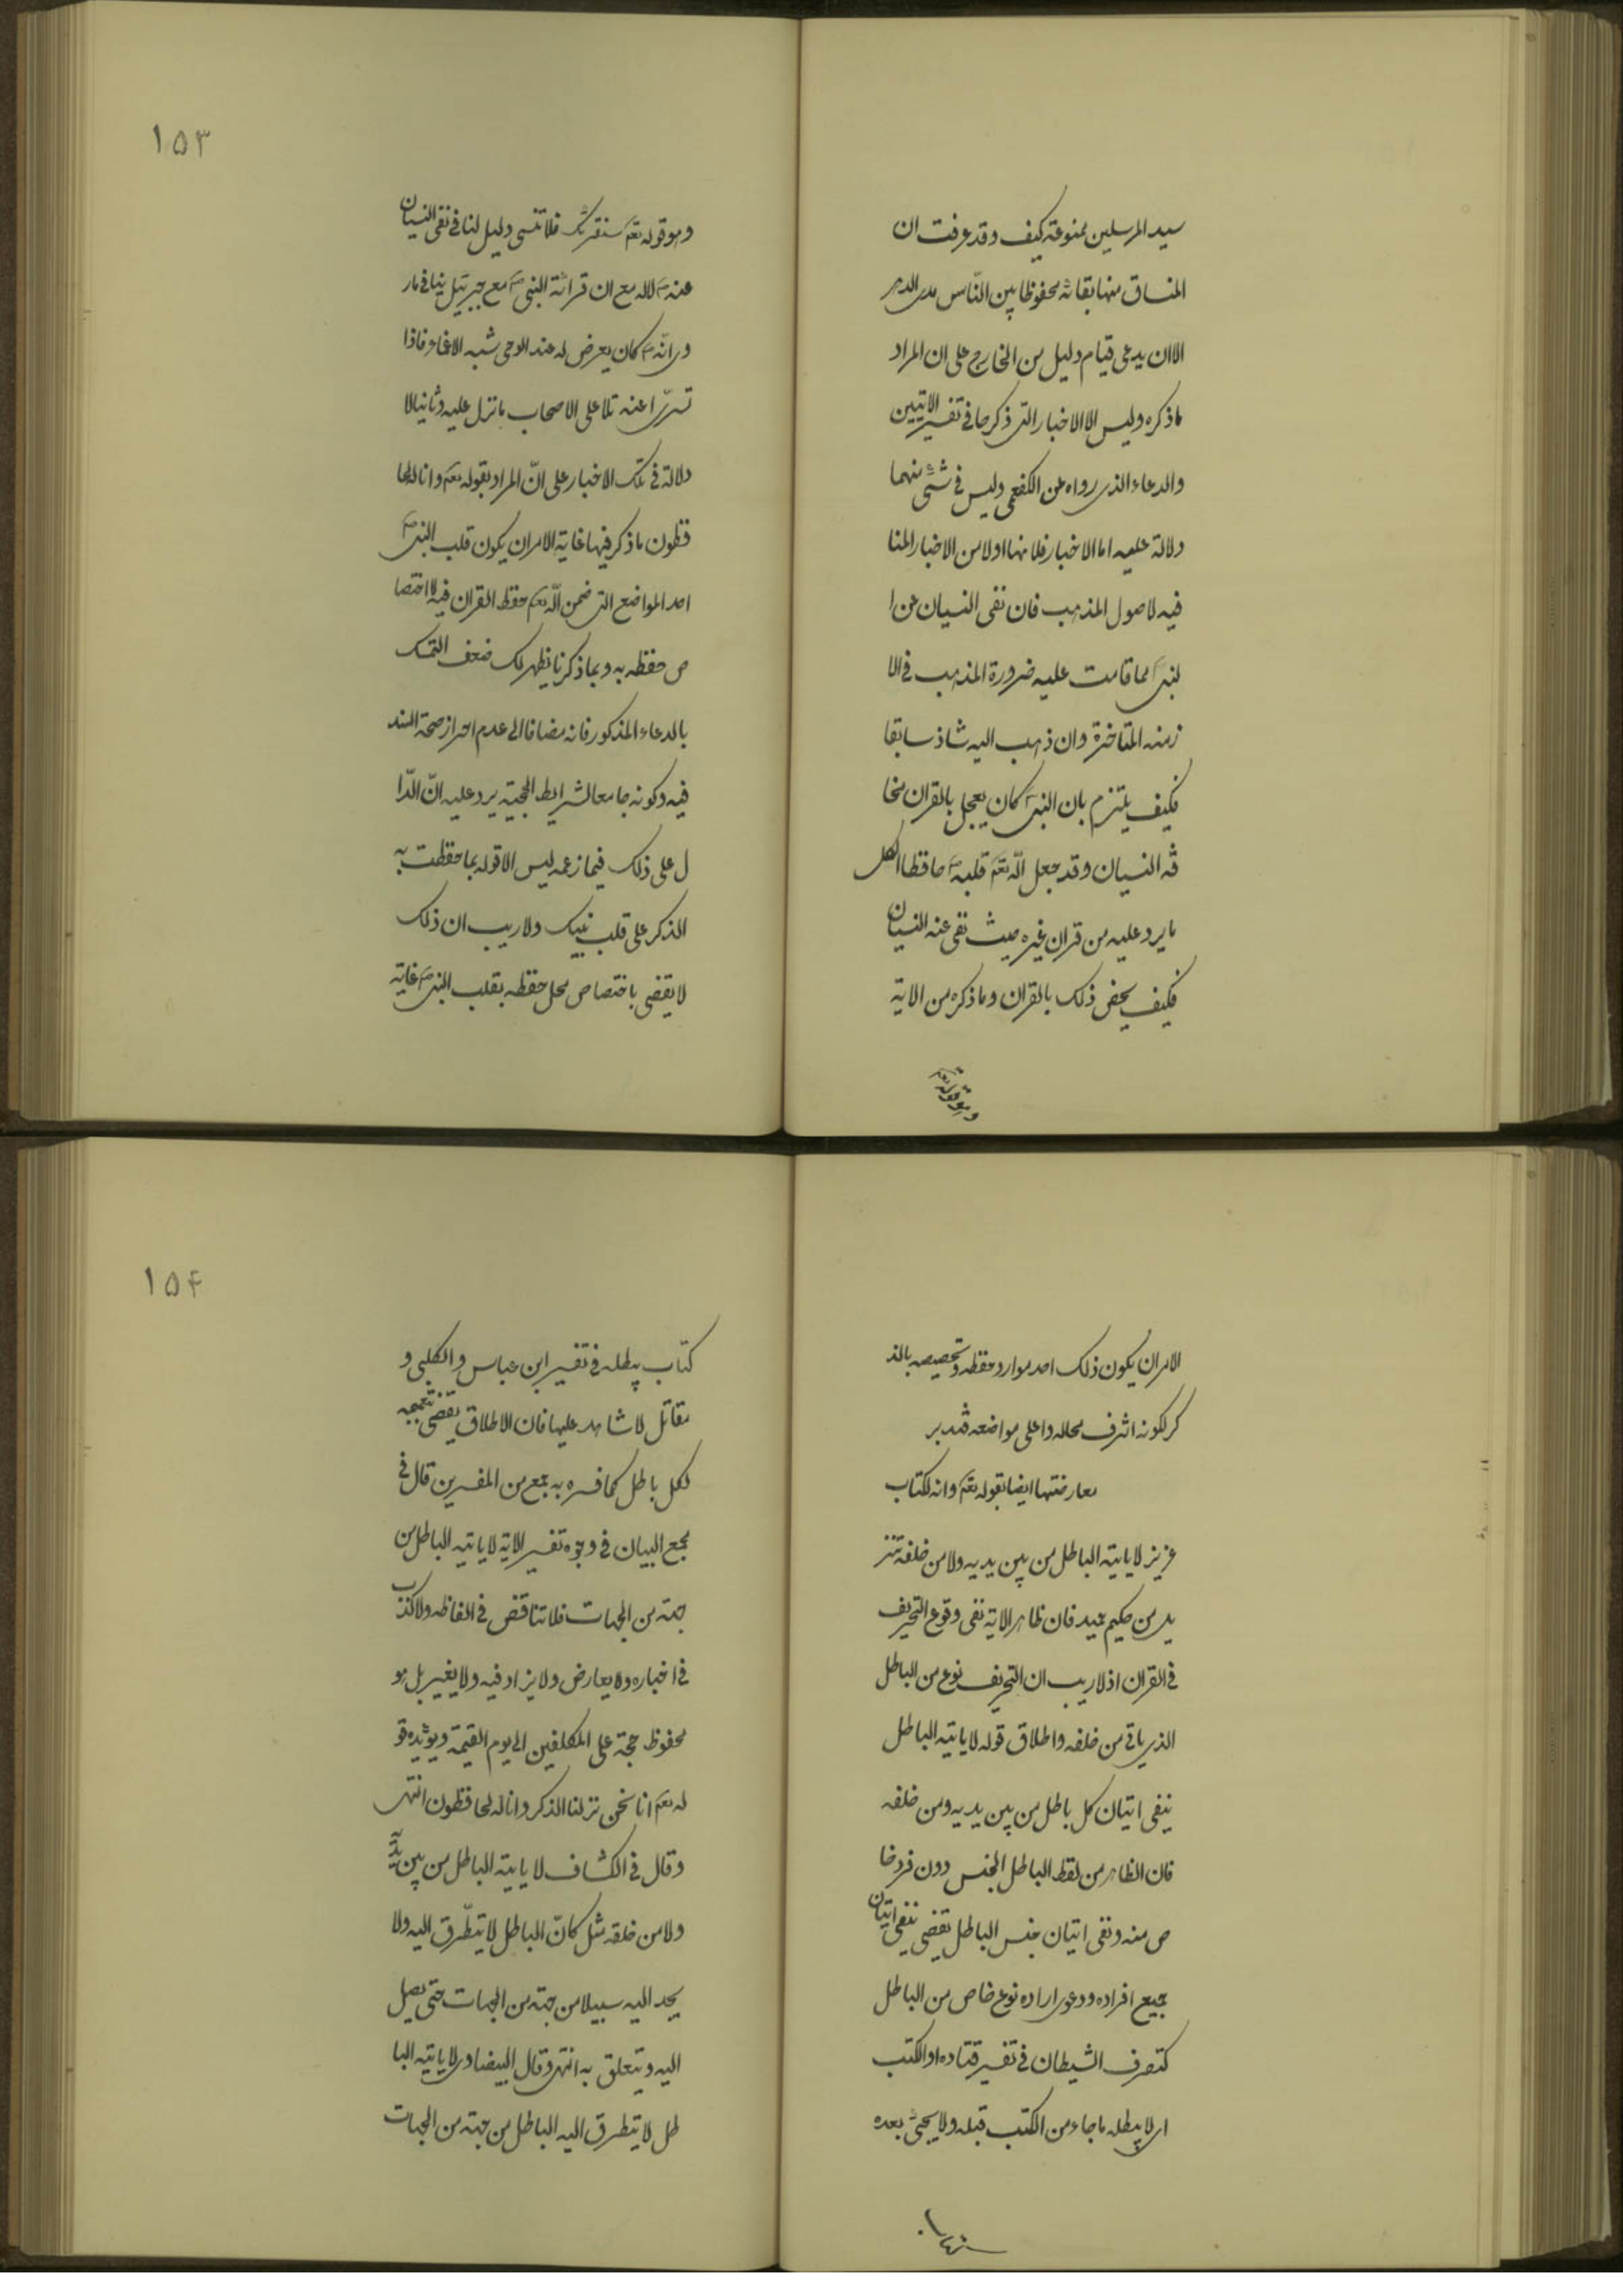 سيد المرسلين ممنوعة كيف وقد عرفت ان
المنساق منها بقائه محفوظا بين النّاس مدى الدهر
الا ان يدعى قيام دليل من الخارج على ان المراد
ما ذكره وليس الا الاخبار التى ذكرها في تفسير الايتين
والدعاء الذى رواه عن الكفعمى وليس في شئ منهما
دلالة عليه اما الاخبار فلانها اولا من الاخبار المنا
فيه لاصول المذهب فان نفى النسيان عن ا
لنبى ص مما قامت عليه ضرورة المذهب في الا
زمنه المتاخرة وان ذهب اليه شاذ سابقا
فكيف يلتزم بان النبى ص كان يعجل بالقران مخا
فه النسيان وقد جعل الله تعم قلبه ص حافظا لكل
ما يرد عليه من قران غيره حيث نفى عنه النسيان
فكيف يخفى ذلك بالقران وما ذكره من الاية
وهو قوله تعم
١٥٣
وهو قوله تعم سنقرئك فلا تنسى دليل لنا في نفى النسيان
عنه ص لا له مع ان قرائة النبى ص مع جبرئيل ينافى ما ر
وى انّه ص كان يعرض له عند الوحى شبه الاغماء فاذا
تسرّى عنه تلا على الاصحاب ما نزل عليه وثانيا لا
دلالة في تلك الاخبار على انّ المراد بقوله تعم وانا له لحا
فظون ما ذكر فيها غاية الامر ان يكون قلب النبى ص
احد المواضع التى ضمن الله تعم حفظ القران فيه لا اختصا
ص حفظه به وبما ذكرنا يظهر لك ضعف التمسك
بالدعاء المذكور فانه مضافا الى عدم احراز صحة السند
فيه وكونه جامعا لشرايط الحجية يرد عليه انّ الدّا
ل على ذلك فيما زعمه ليس الا قوله بما حفظت به
الذكر على قلب نبيك ولا ريب ان ذلك
لا يقضى باختصاص محل حفظه بقلب النبى ص غاية
الامر ان يكون ذلك احد موارد حفظه وتخصيصه بالذ
كر لكونه اشرف محاله واعلى مواضعه فتدبر
معارضتها ايضا بقوله تعم وانه لكتاب
عزيز لا ياتيه الباطل من بين يديه ولا من خلفه تنز
يل من حكيم حميد فان ظاهر الاية نفى وقوع التحريف
في القران اذ لا ريب ان التحريف نوع من الباطل
الذى ياتى من خلفه واطلاق قوله لا ياتيه الباطل
ينفى اتيان كل باطل من بين يديه ومن خلفه
فان الظاهر من لفظ الباطل الجنس دون فرد خا
ص منه ونفى اتيان جنس الباطل يقضى بنفى اتيان
جميع افراده ودعوى اراده نوع خاص من الباطل
كتصرف الشيطان في تفسير قتاده او الكتب
اى لا يبطله ما جاء من الكتب قبله ولا يجئ بعده
كتاب
١٥٤
كتاب يبطله في تفسير ابن عباس والكلبى و
مقاتل لا شاهد عليها فان الاطلاق يقضى بتعميمه
لكل باطل كما فسره به جمع من المفسرين قال في
مجمع البيان في وجوه تفسير الاية لا ياتيه الباطل من
جهة من الجهات فلا تناقض في الفاظه ولا كذب
في اخباره ولا يعارض ولا يزاد فيه ولا يغيير بل هو
محفوظ حجة على المكلفين الى يوم القيمة ويؤيده قو
له تعم انا نحن نزلنا الذكر وانا له لحافظون انتهى
وقال في الكشاف لا ياتيه الباطل من بين يديه
ولا من خلفه مثل كانّ الباطل لا يتطّرق اليه ولا
يجد اليه سبيلا من جهة من الجهات حتى يصل
اليه ويتعلق به انتهى وقال البيضاوى لا ياتيه البا
طل لا يتطرق اليه الباطل من جهة من الجهات